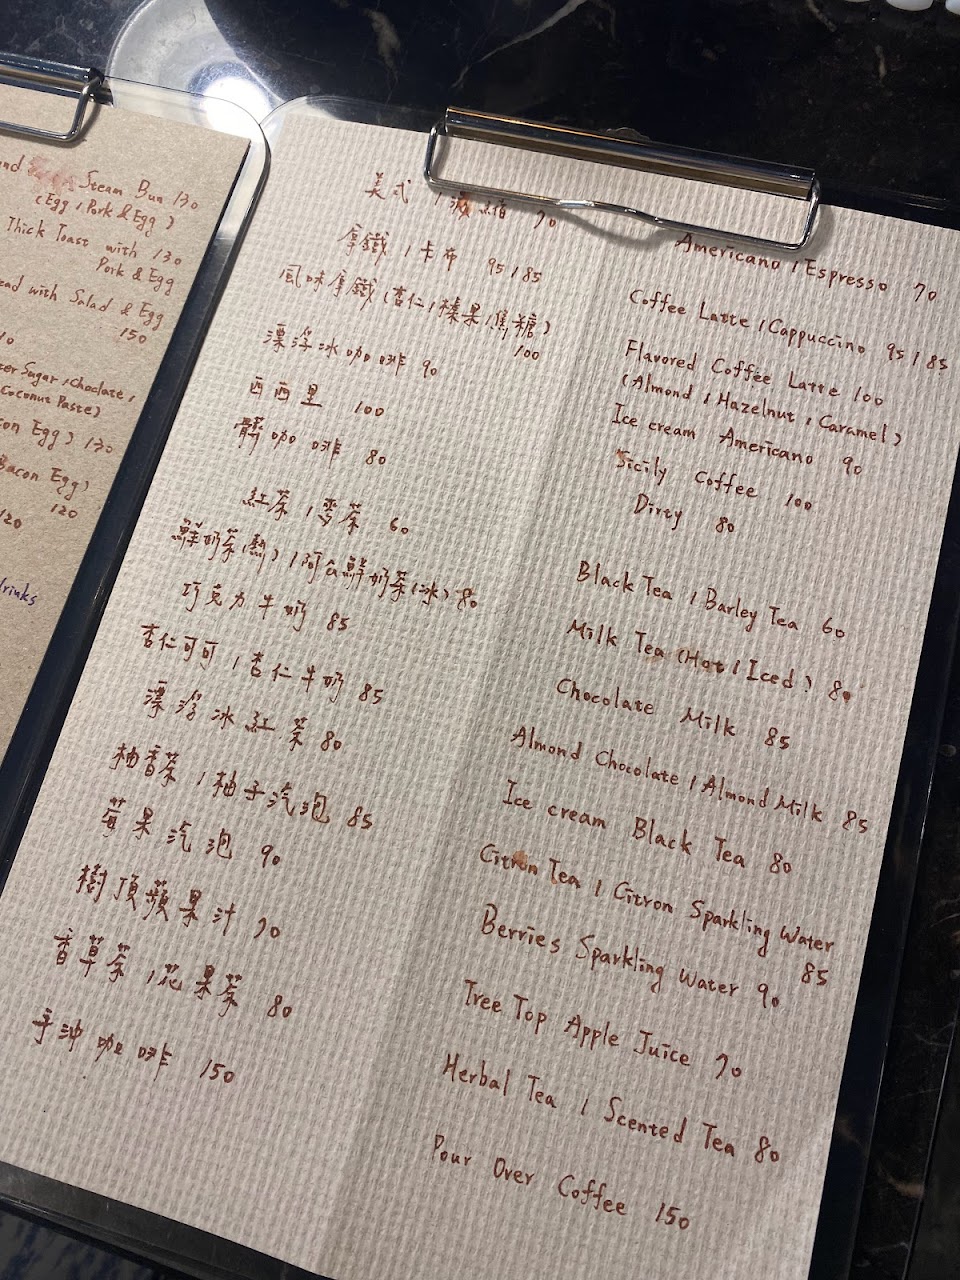 Steam Bun 130
(Egg / Pork & Egg)
Thick Toast with 130
Pork & Egg
with Salad & Egg
150
Sugar / Choclate /
Coconut Paste)
Egg) 130
Bacon Egg)
120
120
美式 / 濃縮 70
拿鐵 / 卡布 95 / 85
風味拿鐵 (杏仁 / 榛果 / 焦糖)
100
漂浮冰咖啡 90
西西里 100
髒咖啡 80
紅茶 / 麥茶 60
鮮奶茶(熱) / 阿公鮮奶茶(冰) 80
巧克力牛奶 85
杏仁可可 / 杏仁牛奶 85
漂浮冰紅茶 80
柚香茶 / 柚子汽泡 85
莓果汽泡 90
樹頂蘋果汁 70
香草茶 / 花果茶 80
手沖咖啡 150
Americano / Espresso 70
Coffee Latte / Cappuccino 95 / 85
Flavored Coffee Latte 100
(Almond / Hazelnut / Caramel)
Ice cream Americano 90
Sicily Coffee 100
Dirty 80
Black Tea / Barley Tea 60
Milk Tea (Hot / Iced) 80
Chocolate Milk 85
Almond Chocolate / Almond Milk 85
Ice cream Black Tea 80
Citron Tea / Citron Sparkling Water
85
Berries Sparkling Water 90
Tree Top Apple Juice 70
Herbal Tea / Scented Tea 80
Pour Over Coffee 150